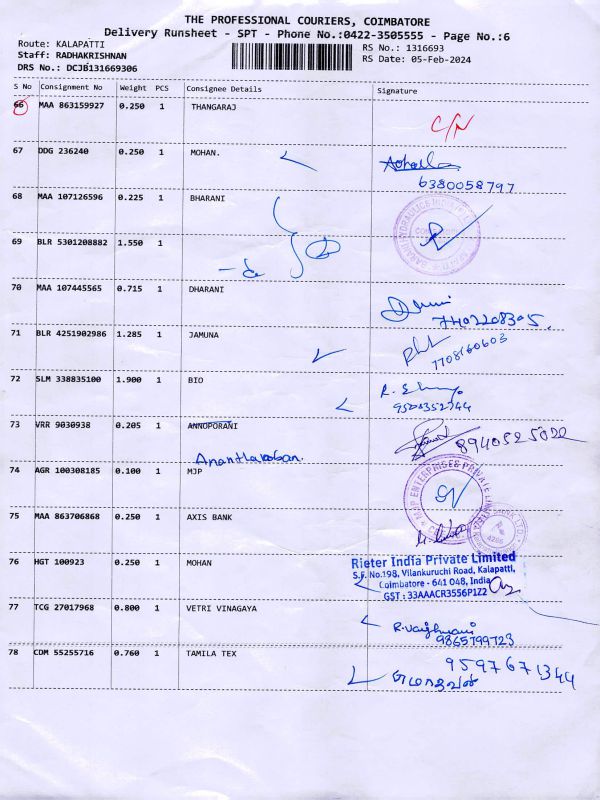 THE PROFESSIONAL COURIERS, COIMBATORE
Delivery Runsheet - SPT - Phone No.:0422-3505555 - Page No.:6
Route: KALAPATTI RS No.: 1316693
Staff: RADHAKRISHNAN RS Date: 05-Feb-2024
DRS No.: DCJB131669306
S No Consignment No Weight PCS Consignee Details Signature
66 MAA 863159927 0.250 1 THANGARAJ
C/N
67 DDG 236240 0.250 1 MOHAN.
6380058797
68 MAA 107126596 0.225 1 BHARANI
69 BLR 5301208882 1.550 1
70 MAA 107445565 0.715 1 DHARANI
7402208305.
71 BLR 4251902986 1.285 1 JAMUNA
7708160603
72 SLM 338835100 1.900 1 BIO
73 VRR 9030938 0.205 1 ANNOPORANI
74 AGR 100308185 0.100 1 MJP
75 MAA 863706868 0.250 1 AXIS BANK
76 HGT 100923 0.250 1 MOHAN
Rieter India Private Limited
S.F. No.198, Vilankuruchi Road, Kalapatti,
Coimbatore - 641 048, India
GST : 33AAACR3556P1Z2
77 TCG 27017968 0.800 1 VETRI VINAGAYA
9865799723
78 CDM 55255716 0.760 1 TAMILA TEX
9597671344